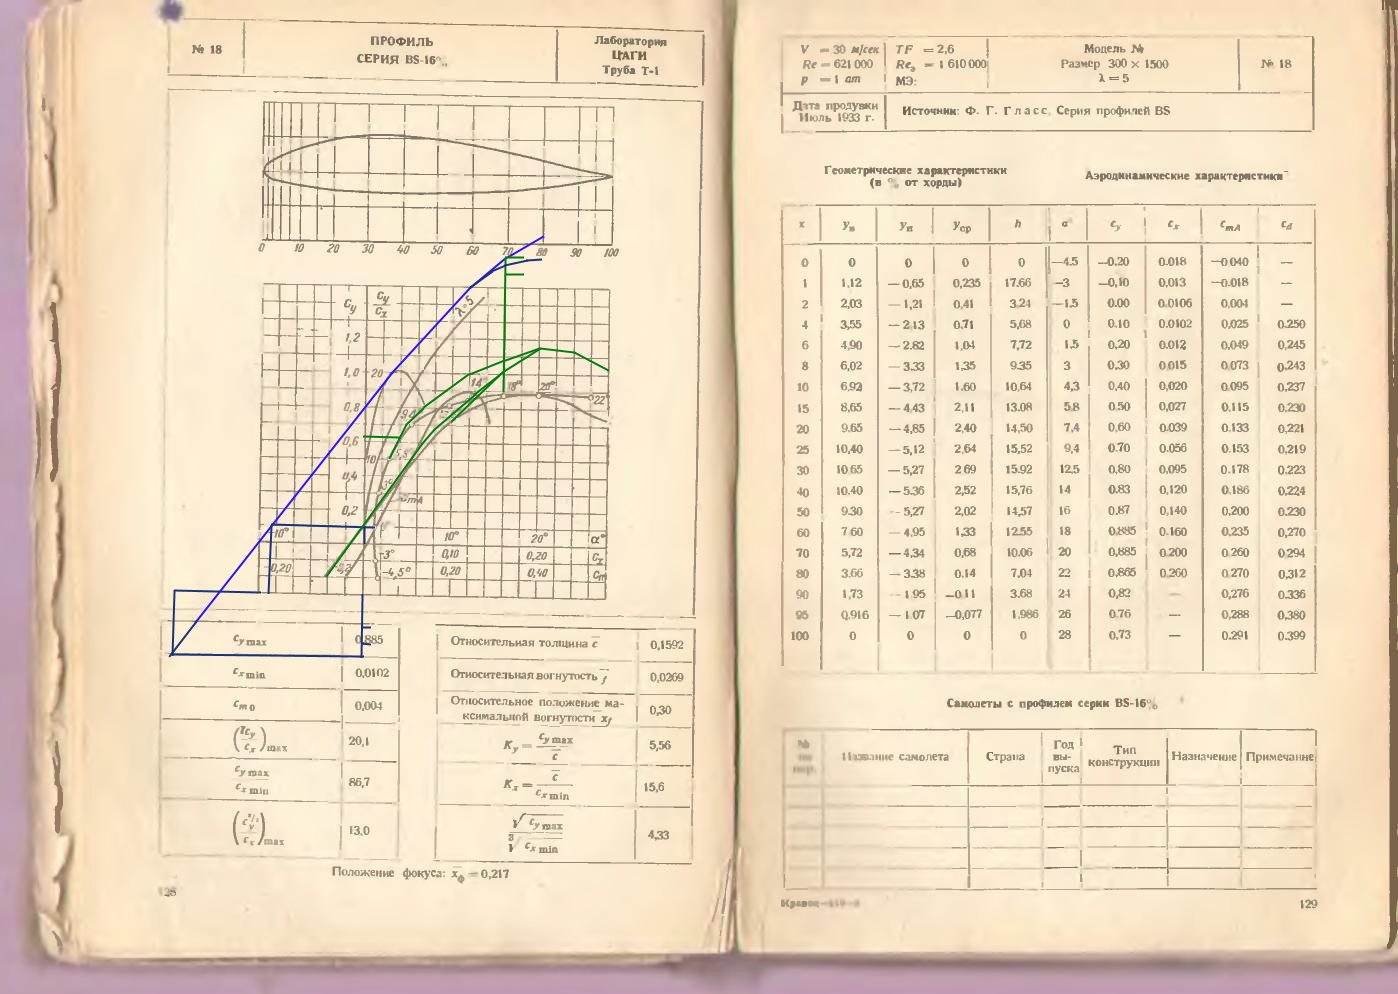 № 18
ПРОФИЛЬ
СЕРИЯ BS-16%
Лаборатория
ЦАГИ
Труба Т-1
0 10 20 30 40 50 60 70 80 90 100
C_y C_y/C_x λ=5
1,2
1,0 20
0,8
0,6
10
0,4
0,2
14° 18° 20° 22°
C_mA
-10° 10° 20° α°
-3° 0,10 0,20 C_x
-0,20 -0,2 -4,5° 0,20 0,40 C_m
c_y max 0,885
c_x min 0,0102
c_m0 0,004
(c_y/c_x) max 20,1
c_y max / c_x min 86,7
(c_y^3/2 / c_x) max 13,0
Относительная толщина c̄ 0,1592
Относительная вогнутость f̄ 0,0269
Относительное положение максимальной вогнутости x̄_f 0,30
K_y = c_y max / c̄ 5,56
K_x = c̄ / c_x min 15,6
√c_y max / ∛c_x min 4,33
Положение фокуса: x̄_ф = 0,217
V = 30 м/сек TF = 2,6 Модель №
Re = 621 000 Re_э = 1 610 000 Размер 300 × 1500 № 18
p = 1 ат МЭ: λ = 5
Дата продувки
Июль 1933 г.
Источник: Ф. Г. Гласс, Серия профилей BS
Геометрические характеристики
(в % от хорды)
Аэродинамические характеристики
x y_в y_н y_ср h α° c_y c_x c_mA c_d
0 0 0 0 0 —4.5 —0.20 0.018 —0 040 —
1 1,12 — 0,65 0,235 17.66 —3 —0,10 0,013 —0.018 —
2 2,03 — 1,21 0,41 3.24 —1,5 0.00 0.0106 0,004 —
4 3,55 — 2 13 0.71 5,68 0 0.10 0.0102 0,025 0.250
6 4,90 — 2.82 1,04 7,72 1.5 0,20 0.012 0,049 0,245
8 6,02 — 3.33 1,35 9.35 3 0,30 0 015 0 073 0,243
10 6,92 — 3,72 1.60 10,64 4,3 0,40 0,020 0.095 0.237
15 8,65 — 4,43 2,11 13.08 5,8 0.50 0,027 0.115 0.230
20 9.65 — 4,85 2,40 14,50 7,4 0,60 0.039 0.133 0,221
25 10,40 — 5,12 2,64 15,52 9,4 0.70 0.056 0.153 0,219
30 10 65 — 5,27 2 69 15.92 12,5 0,80 0,095 0.178 0.223
40 10.40 — 5.36 2,52 15,76 14 0.83 0,120 0.186 0,224
50 9.30 — 5,27 2,02 14,57 16 0.87 0,140 0.200 0.230
60 7 60 — 4,95 1,33 12.55 18 0.885 0.160 0.235 0,270
70 5,72 — 4,34 0,68 10.06 20 0,885 0,200 0 260 0294
80 3.66 — 3.38 0.14 7,04 22 0,865 0,260 0.270 0,312
90 1,73 — 1 95 —0 11 3.68 24 0,82 — 0,276 0.336
95 0,916 — 1 07 —0,077 1.986 26 0.76 — 0,288 0.380
100 0 0 0 0 28 0.73 — 0.291 0.399
Самолеты с профилем серии BS-16%
Название самолета Страна Год выпуска Тип конструкции Назначение Примечание
129